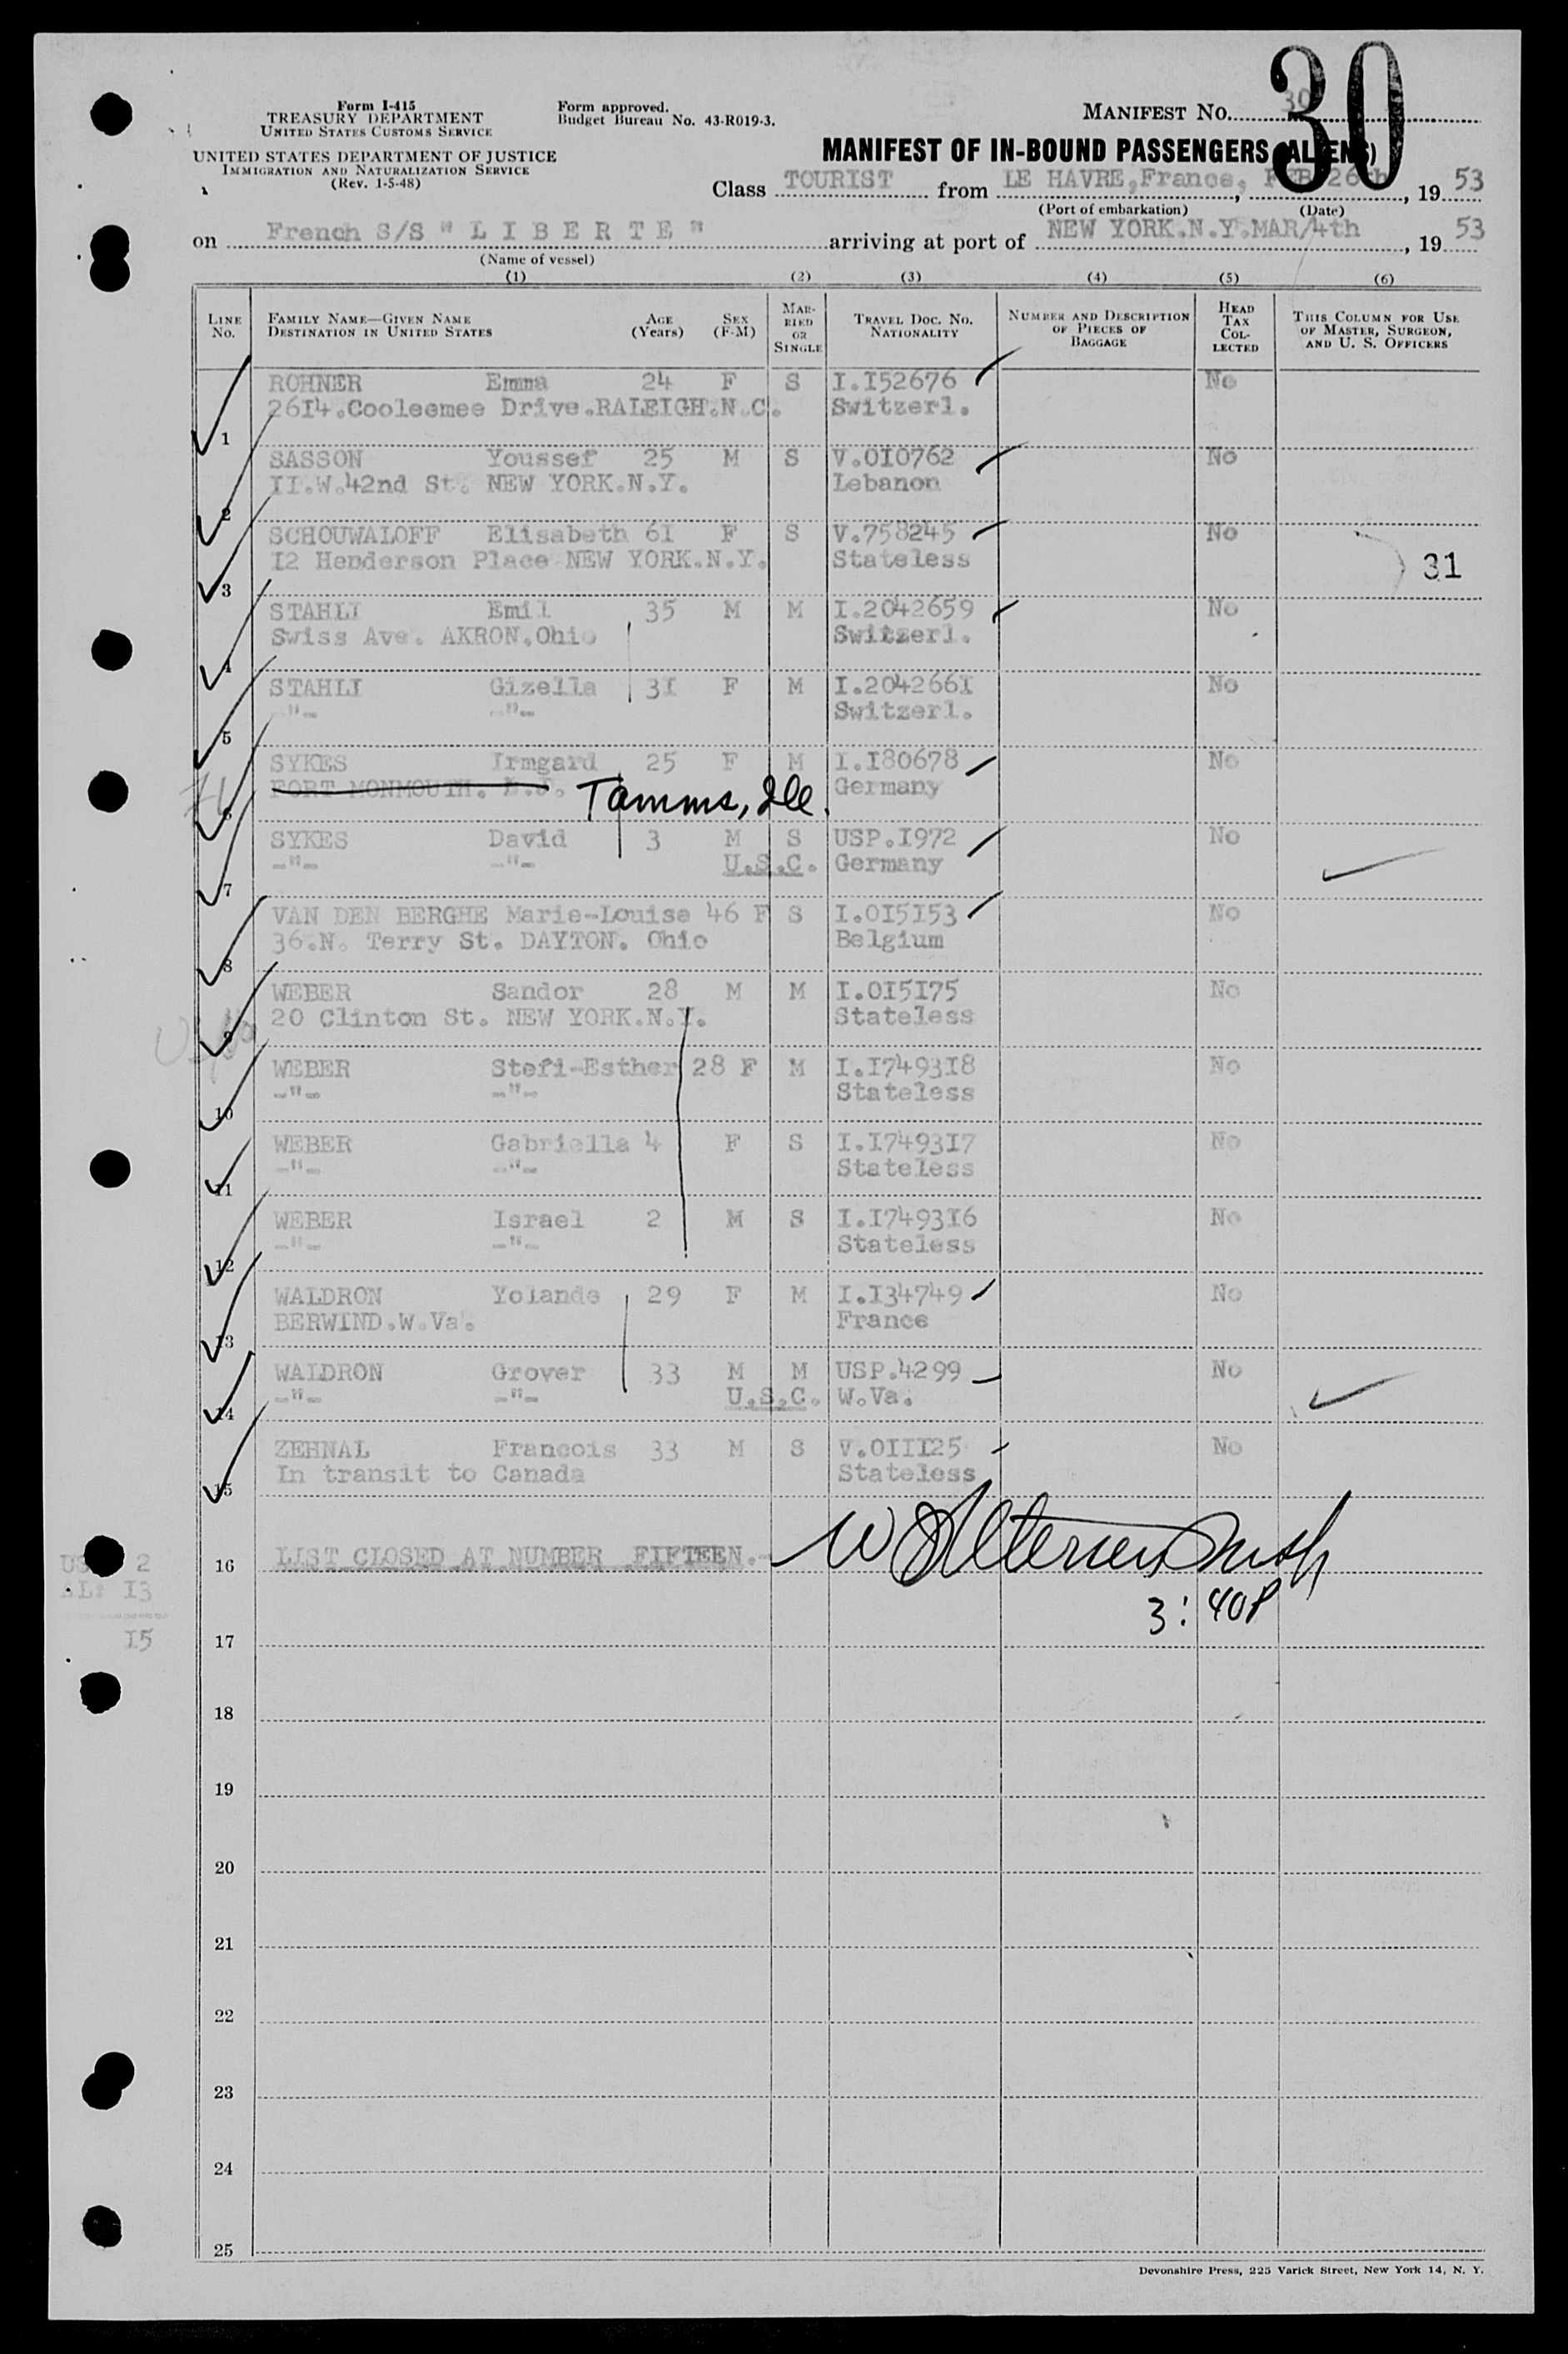 30
Form I-415
TREASURY DEPARTMENT
UNITED STATES CUSTOMS SERVICE
UNITED STATES DEPARTMENT OF JUSTICE
IMMIGRATION AND NATURALIZATION SERVICE
(Rev. 1-5-48)
Form approved.
Budget Bureau No. 43-R019-3.
MANIFEST NO. 30
MANIFEST OF IN-BOUND PASSENGERS (ALIENS)
Class TOURIST from LE HAVRE,France, FEB 26th, 19 53
(Port of embarkation) (Date)
on French S/S " L I B E R T E " arriving at port of NEW YORK.N.Y.MAR/4th, 19 53
(Name of vessel)
(1) (2) (3) (4) (5) (6)
LINE No.
FAMILY NAME—GIVEN NAME
DESTINATION IN UNITED STATES
AGE (Years)
SEX (F-M)
MARRIED OR SINGLE
TRAVEL DOC. NO.
NATIONALITY
NUMBER AND DESCRIPTION OF PIECES OF BAGGAGE
HEAD TAX COLLECTED
THIS COLUMN FOR USE OF MASTER, SURGEON, AND U. S. OFFICERS
ROHNER Emma 24 F S I.I52676 No
2614.Cooleemee Drive.RALEIGH.N.C. Switzerl.
1
SASSON Youssef 25 M S V.0I0762 No
II.W.42nd St. NEW YORK.N.Y. Lebanon
2
SCHOUWALOFF Elisabeth 6I F S V.758245 No
I2 Henderson Place NEW YORK.N.Y. Stateless 31
3
STAHLI Emil 35 M M I.2042659 No
Swiss Ave. AKRON.Ohio Switzerl.
4
STAHLI Gizella 3I F M I.204266I No
-"- -"- Switzerl.
5
SYKES Irmgard 25 F M I.I80678 No
FORT MONMOUTH. N.J. Tamms, Ill. Germany
6
SYKES David 3 M S USP.I972 No
-"- -"- U.S.C. Germany
7
VAN DEN BERGHE Marie-Louise 46 F S I.0I5I53 No
36.N. Terry St. DAYTON. Ohio Belgium
8
WEBER Sandor 28 M M I.0I5I75 No
20 Clinton St. NEW YORK.N.Y. Stateless
9
WEBER Stefi-Esther 28 F M I.I7493I8 No
-"- -"- Stateless
10
WEBER Gabriella 4 F S I.I7493I7 No
-"- -"- Stateless
11
WEBER Israel 2 M S I.I7493I6 No
-"- -"- Stateless
12
WALDRON Yolande 29 F M I.I34749 No
BERWIND.W.Va. France
13
WALDRON Grover 33 M M USP.4299 No
-"- -"- U.S.C. W.Va.
14
ZEHNAL Francois 33 M S V.0III25 No
In transit to Canada Stateless
15
16 LIST CLOSED AT NUMBER FIFTEEN.-
2
I3
I5
3:40P
17
18
19
20
21
22
23
24
25
Devonshire Press, 225 Varick Street, New York 14, N. Y.